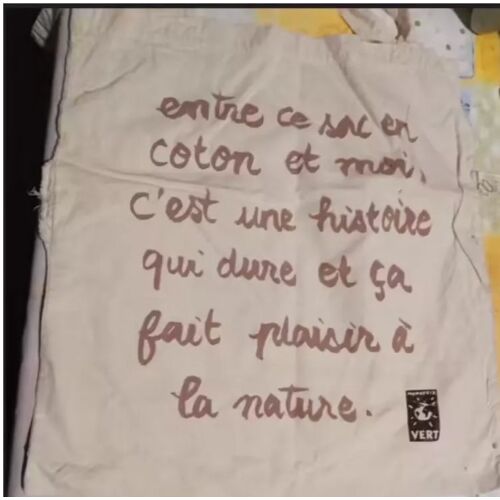 entre ce sac en
coton et moi,
c'est une histoire
qui dure et ça
fait plaisir à
la nature.
MONOPRIX
VERT